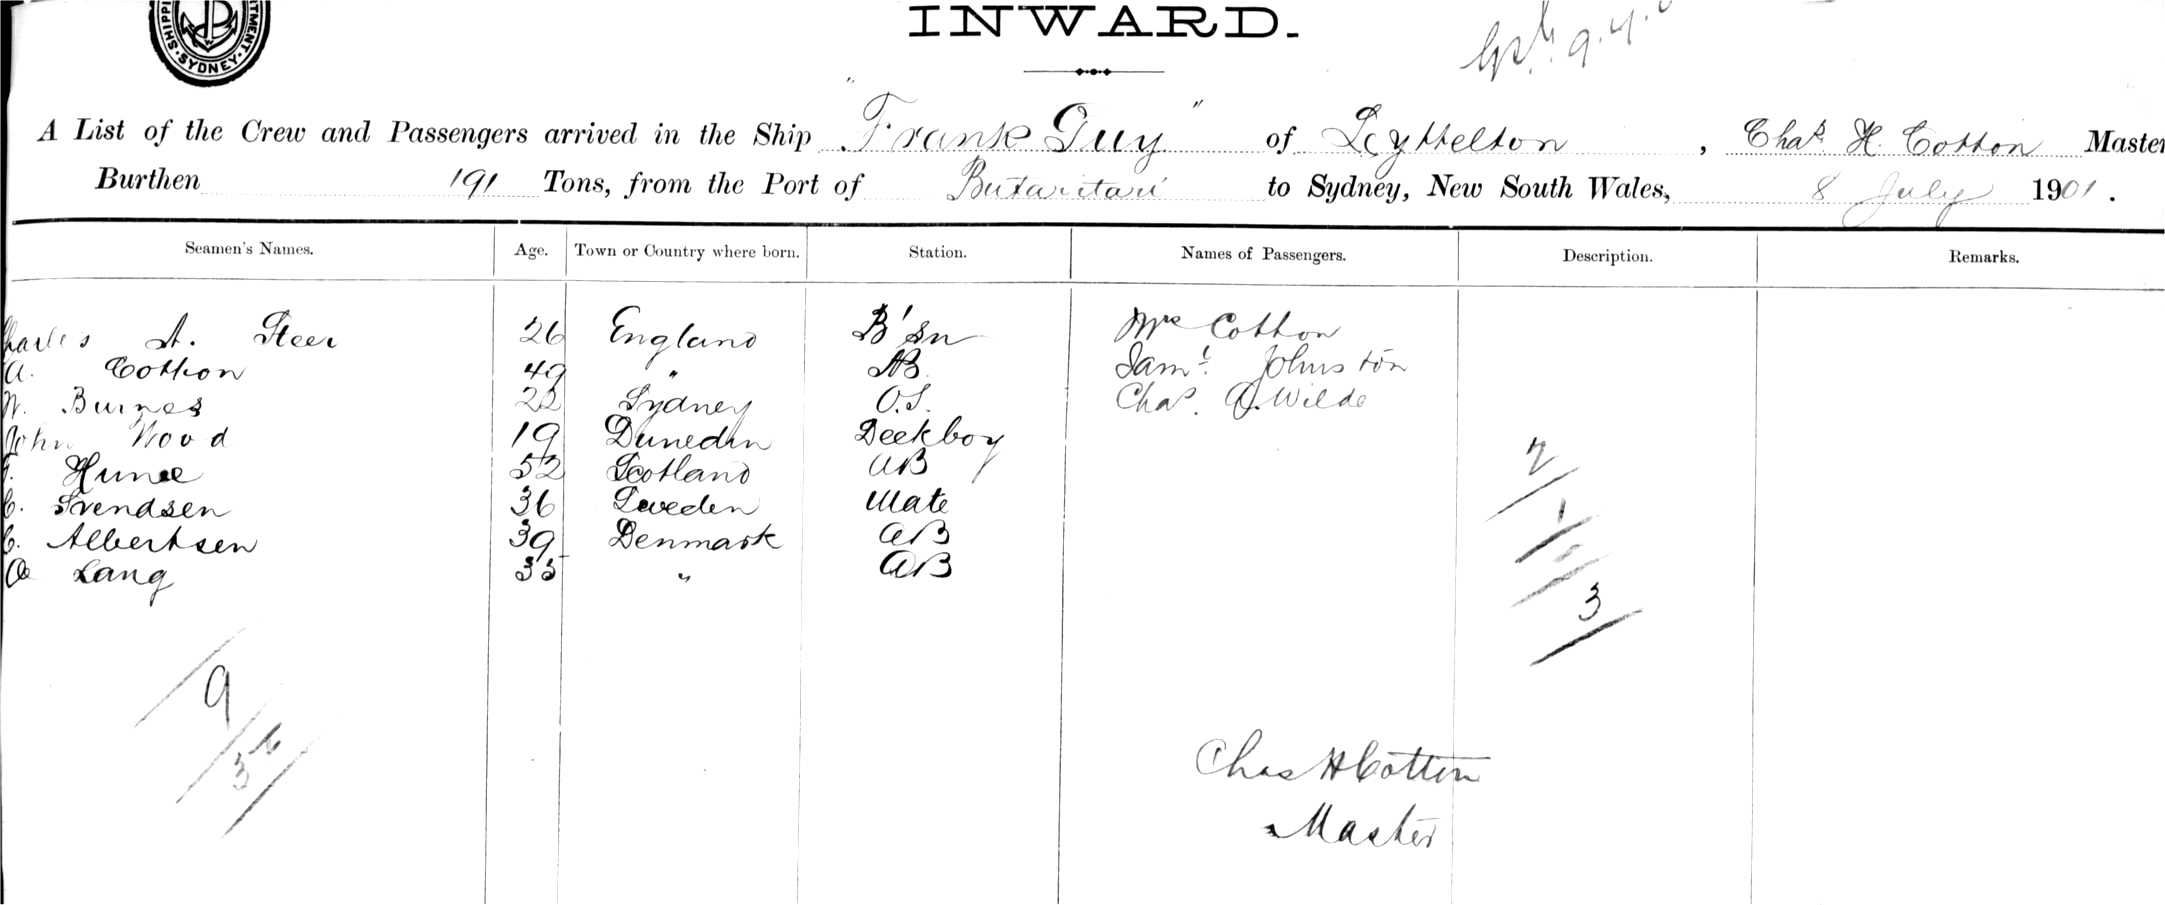 SHIPPI
TMENT. SYDNEY.
INWARD.
A List of the Crew and Passengers arrived in the Ship "Frank Guy" of Lyttelton, Chas. H. Cotton Master
Burthen 191 Tons, from the Port of Butaritari to Sydney, New South Wales, 8 July 1901.
Seamen's Names. Age. Town or Country where born. Station. Names of Passengers. Description. Remarks.
harles A. Steer 26 England B'sn Mrs Cotton
A. Cotton 49 " AB Saml. Johnston
W. Burnes 22 Sydney O.S. Chas. D. Wilde
John Wood 19 Dunedin Deckboy
Hume 52 Scotland AB
C. Svendsen 36 Sweden Mate
C. Albertsen 39 Denmark AB
Lang 35 " AB
2
1
3
9
Chas H Cotton
Master